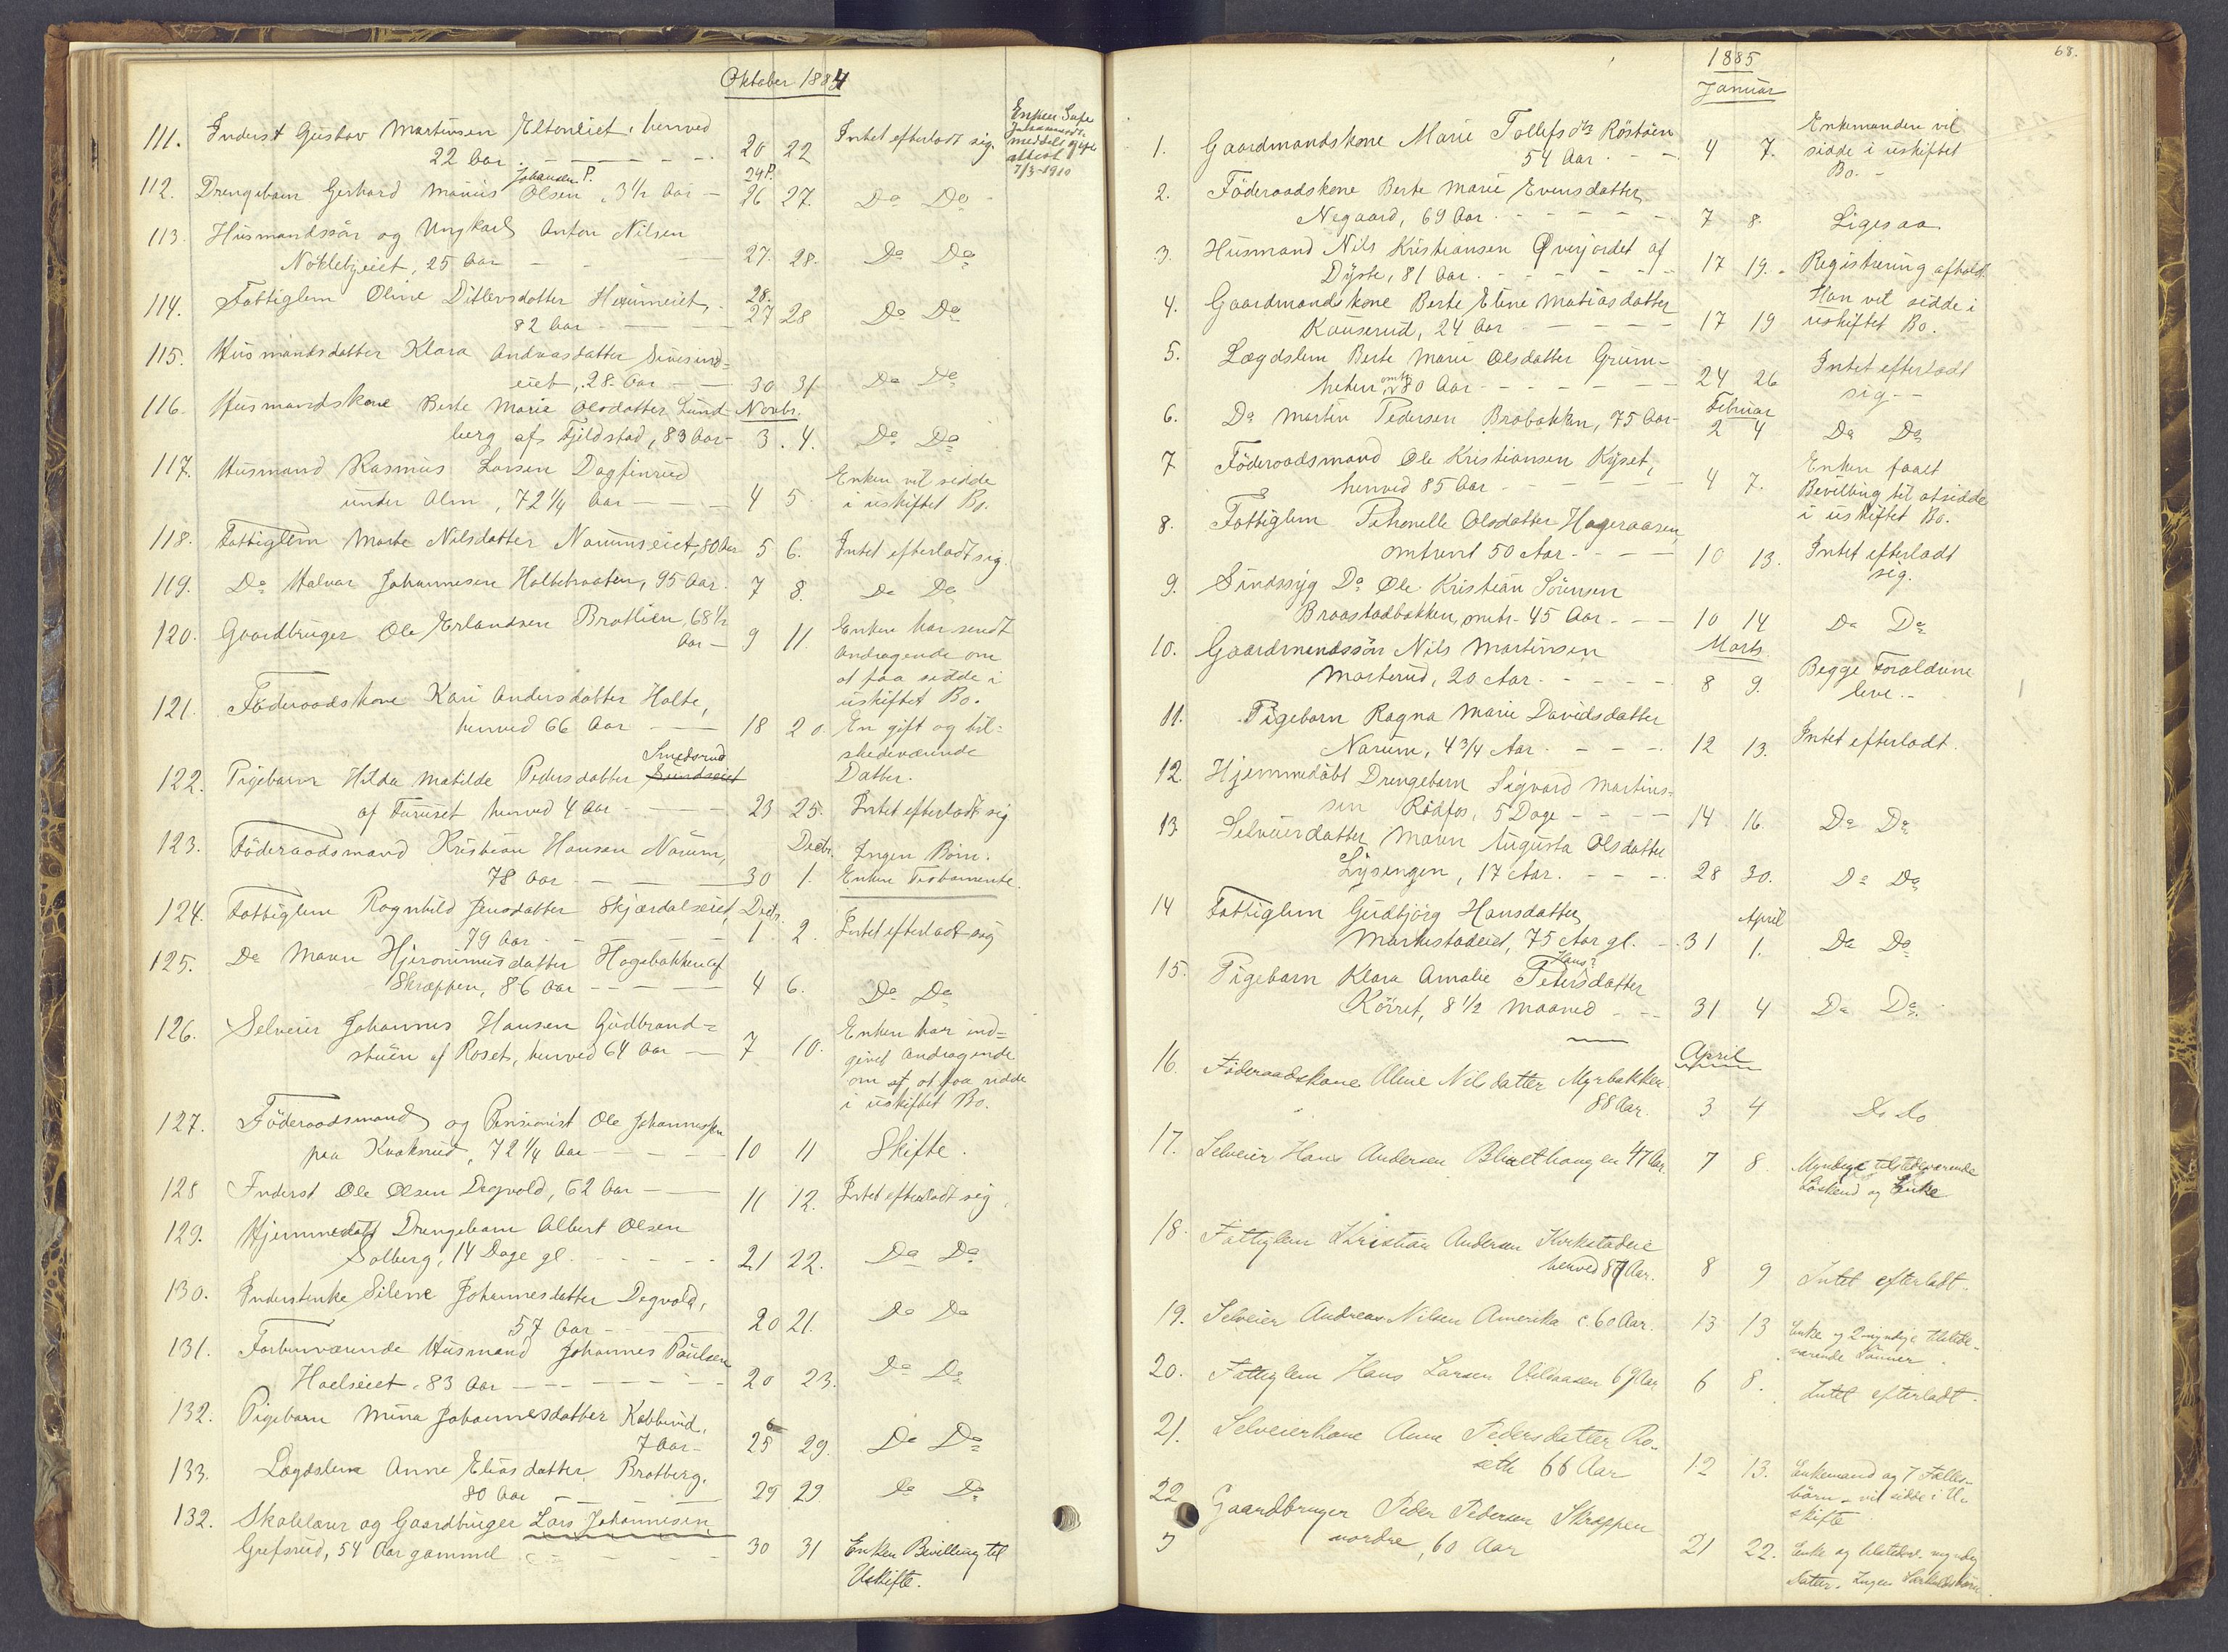 Oktober 1884
111. Inderst Gustav Martinsen Eltoneiet, henved
22 Aar. 20 22 Intet efterladt sig.
Enken
meddelt
attest
7/3-1910
Johansen P. 24 P.
112. Drengebarn Gerhard Marius Olsen, 3 1/2 Aar 26 27. Do Do
113. Husmandssön og Ungkarl Anton Nilsen
Nöklebyeiet, 25 Aar 27. 28. Do Do
114. Fattiglem Oline Ditlevsdatter 28.
82 Aar 27 28 Do Do
115. Husmandsdatter Klara Andreasdatter
eiet, 28 Aar 30 31 Do Do
116. Husmandskone Berte Marie Olsdatter Lund- Novbr.
berg af Fjeldstad, 83 Aar 3. 4. Do Do
117. Husmand Rasmus Larsen Dagfinrud
under Alm, 72 1/4 Aar 4 5
Enken vil sidde
i uskiftet Bo.
118. Fattiglem Marte Nilsdatter Narumseiet, 80 Aar 5 6. Intet efterladt sig.
119. Do Halvar Johannesen Holtebraaten, 95 Aar. 7 8. Do Do
120. Gaardbruger Ole Erlandsen Bratlien, 68 1/2
Aar 9 11.
Enken har sendt
Andragende om
at faa sidde i
uskiftet Bo.
121. Föderaadskone Kari Andersdatter Holte,
henved 66 Aar 18 20.
En gift og til-
stedeværende
Datter.
Smedsrud
122. Pigebarn Hilda Matilde Pedersdatter Sundseiet
af Furuset henved 4 Aar 23 25. Intet efterladt sig
123. Föderaadsmand Kristian Hansen Narum, Decbr.
78 Aar 30 1.
Ingen Börn.
Enken Testamente.
124. Fattiglem Ragnhild Jensdatter Skjærdalseiet, Decbr.
79 Aar 1 2. Intet efterladt sig
125. Do Maren Hjeronimusdatter Hagebakken af
Skrappen, 86 Aar 4 6. Do Do
126. Selveier Johannes Hansen Gudbrand-
stuen af Roset, henved 64 Aar 7 10.
Enken har ind-
givet Andragende
om at, at faa sidde
i uskiftet Bo.
127. Föderaadsmand og Pensionist Ole Johannessen
paa Kvaksrud, 72 1/4 Aar 10 11 Skifte.
128 Inderst Ole Olsen Degvold, 62 Aar 11 12. Intet efterladt sig.
129. Hjemmedöbt Drengebarn Albert Olsen
Solberg, 14 Dage gl. 21 22. Do Do
130. Inderstenke Silene Johannesdatter Degvold,
57 Aar 20 21. Do Do
131. Forhenværende Husmand Johannes Paulsen
Hoelseiet, 83 Aar 20 23. Do Do
132. Pigebarn Mina Johannesdatter Kabberud,
7 Aar 25 29. Do Do
133. Lægdslem Anne Eliasdatter Bratberg,
80 Aar 29 29. Do Do
132. Skolelærer og Gaardbruger Lars Johannesen
Grefsrud, 54 Aar gammel 30 31
Enken Bevilling til
Uskifte.
68.
1885
Januar
1. Gaardmandskone Marie Tollefsdtr Röstöen
54 Aar 4 7.
Enkemanden vil
sidde i uskiftet
Bo.
2. Föderaadskone Berte Marie Evensdatter
Negaard, 69 Aar 7 8. Ligesaa
3. Husmand Nils Kristiansen Överjordet af
Dyste, 81 Aar 17 19. Registrering afholdt
4. Gaardmandskone Berte Eline Matiasdatter
Kauserud, 24 Aar 17 19
Han vil sidde i
uskiftet Bo.
5. Lægdslem Berte Marie Olsdatter Grim-
omtr. 80 Aar 24 26
Intet efterladt
sig
Februar
6. Do Martin Pedersen Brobakken, 75 Aar 2 4 Do Do
7 Föderaadsmand Ole Kristiansen Kyset,
henved 85 Aar 4 7.
Enken faaet
Bevilling til at sidde
i uskiftet Bo.
8. Fattiglem Petronelle Olsdatter Hageraasen
omtrent 50 Aar 10 13.
Intet efterladt
sig.
9. Sindssyg Do Ole Kristian Sörensen
Braastadbakken, omtr. 45 Aar 10 14 Do Do
Marts
10. Gaardmandssön Nils Martinsen
Marterud, 20 Aar 8 9.
Begge Forældrene
leve.
11. Pigebarn Ragna Marie Davidsdatter
Narum, 4 3/4 Aar 12 13. Intet efterladt.
12. Hjemmedöbt Drengebarn Sigvard Martins-
sen Rödfos, 5 Dage 14 16. Do Do
13 Selveierdatter Maren Augusta Olsdatter
Lysengen, 17 Aar. 28 30. Do Do
14 Fattiglem Gudbjörg Hansdatter April
75 Aar gl. 31 1. Do Do
Hans?
15. Pigebarn Klara Amalie Petersdatter
Körret, 8 1/2 Maaned 31 4 Do Do
April
16. Föderaadskone Oline Nilsdatter Myrbakken
88 Aar. 3 4 Do Do
17. Selveier Hans Andersen Blaaethaugen 47 Aar. 7 8.
Myndige tilstedeværende
Söskend og Enke
18. Fattiglem Kristian Andersen
henved 87 Aar. 8 9 Intet efterladt.
19. Selveier Andreas Nilsen Amerika c. 60 Aar. 13 13
Enke og 2 myndige tilstede-
værende Sönner
20. Fattiglem Hans Larsen Vildaasen 67 Aar 6 8. Intet efterladt.
21. Selveierkone Anne Pedersdatter Ro-
seth 66 Aar 12 13.
Enkemand og 7 Fælles-
börn - vil sidde i U-
skifte
22 Gaardbruger Peder Pedersen Skrappen
nordre, 60 Aar 21 22.
Enke og tilstedev. myndig
Datter. Ingen Særkuldsbörn.